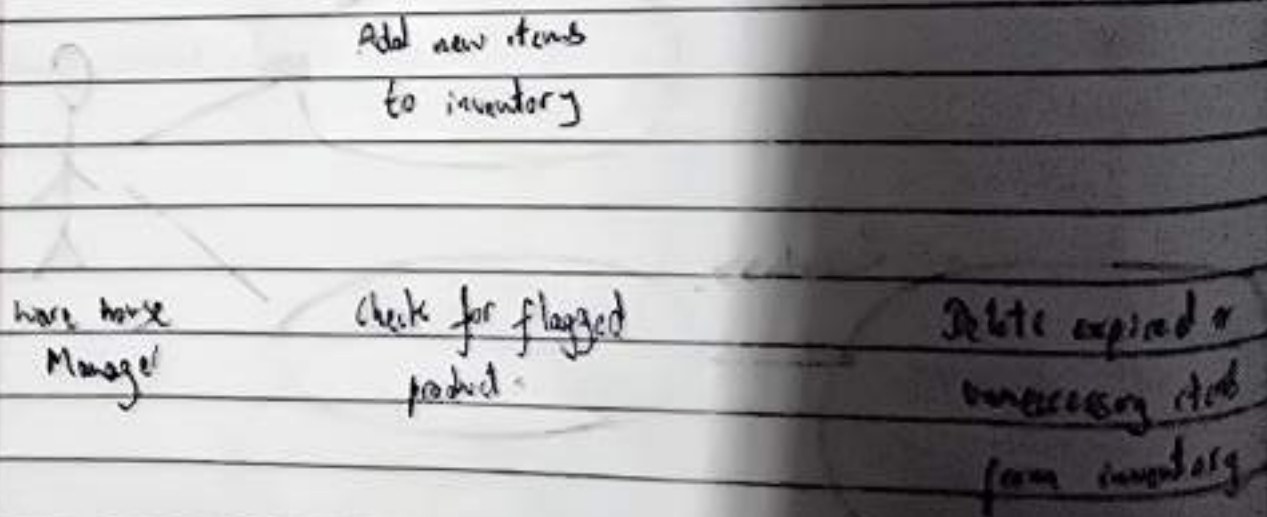 Add new items
to inventory
ware house
Manager
Check for flagged
product
Delete expired or
unnescessary items
from inventory